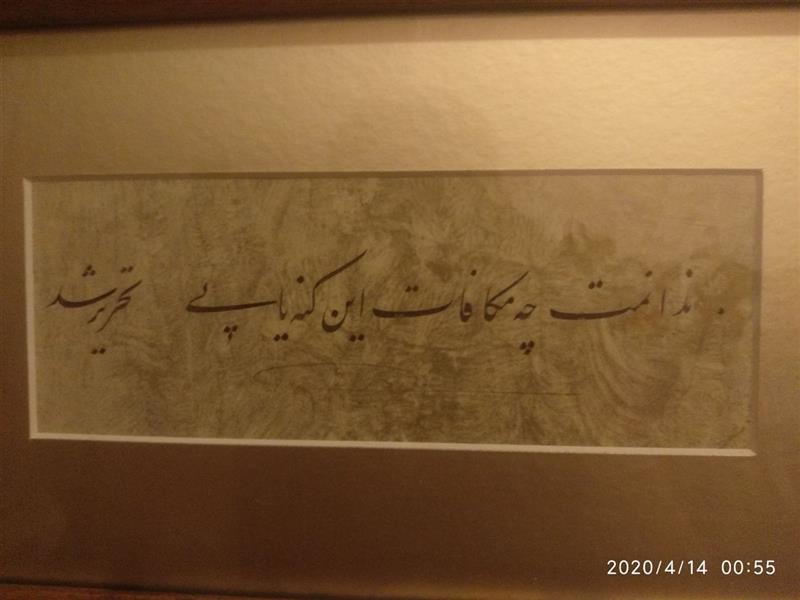 ندانمت چه مکافات این گنه یابی
تحریر شد
2020/4/14 00:55